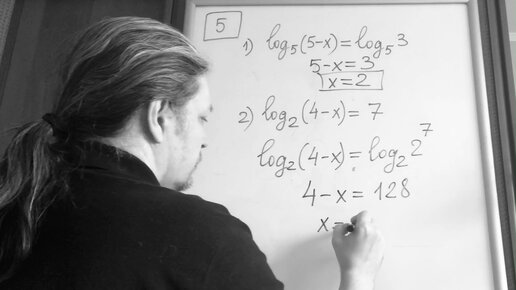 5
1) log₅(5-x)=log₅3
5-x=3
x=2
2) log₂(4-x)=7
log₂(4-x)=log₂2⁷
4-x=128
x=